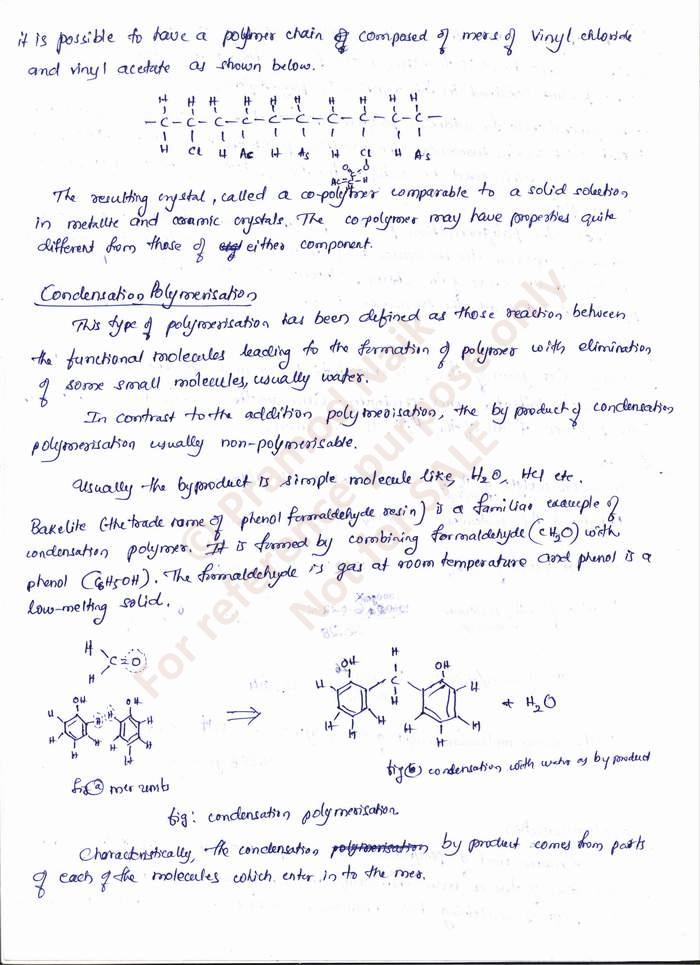 it is possible to have a polymer chain composed of mers of vinyl chloride
and vinyl acetate as shown below.
H H H H H H H H H H
- C - C - C - C - C - C - C - C - C - C -
H Cl H Ac H As H Cl H As
O O
Ac C H
The resulting crystal, called a co-polymer comparable to a solid solution
in metallic and ceramic crystals. The co-polymer may have properties quite
different from those of either component.
Condensation Polymerisation
This type of polymerisation has been defined as those reaction between
the functional molecules leading to the formation of polymer with elimination
of some small molecules, usually water.
In contrast to the addition polymerisation, the by product of condensation
polymerisation usually non-polymerisable.
Usually the byproduct is simple molecule like, H2O, HCl etc.
Bakelite (the trade name of phenol formaldehyde resin) is a familiar example of
condensation polymer. It is formed by combining formaldehyde (CH2O) with
phenol (C6H5OH). The fromaldehyde is gas at room temperature and phenol is a
low-melting solid.
H
C=O
H
OH OH
H H H H
H H H H
H H
⇒
OH H OH
H C H
H H H H
H H
+ H2O
fig (a) mer units
fig (b) condensation with water as by product
fig: condensation polymerisation
Characteristically, the condensation polymerisation by product comes from parts
of each of the molecules which enter in to the mer.
© Pramod Naik
For reference purpose only
Not for SALE